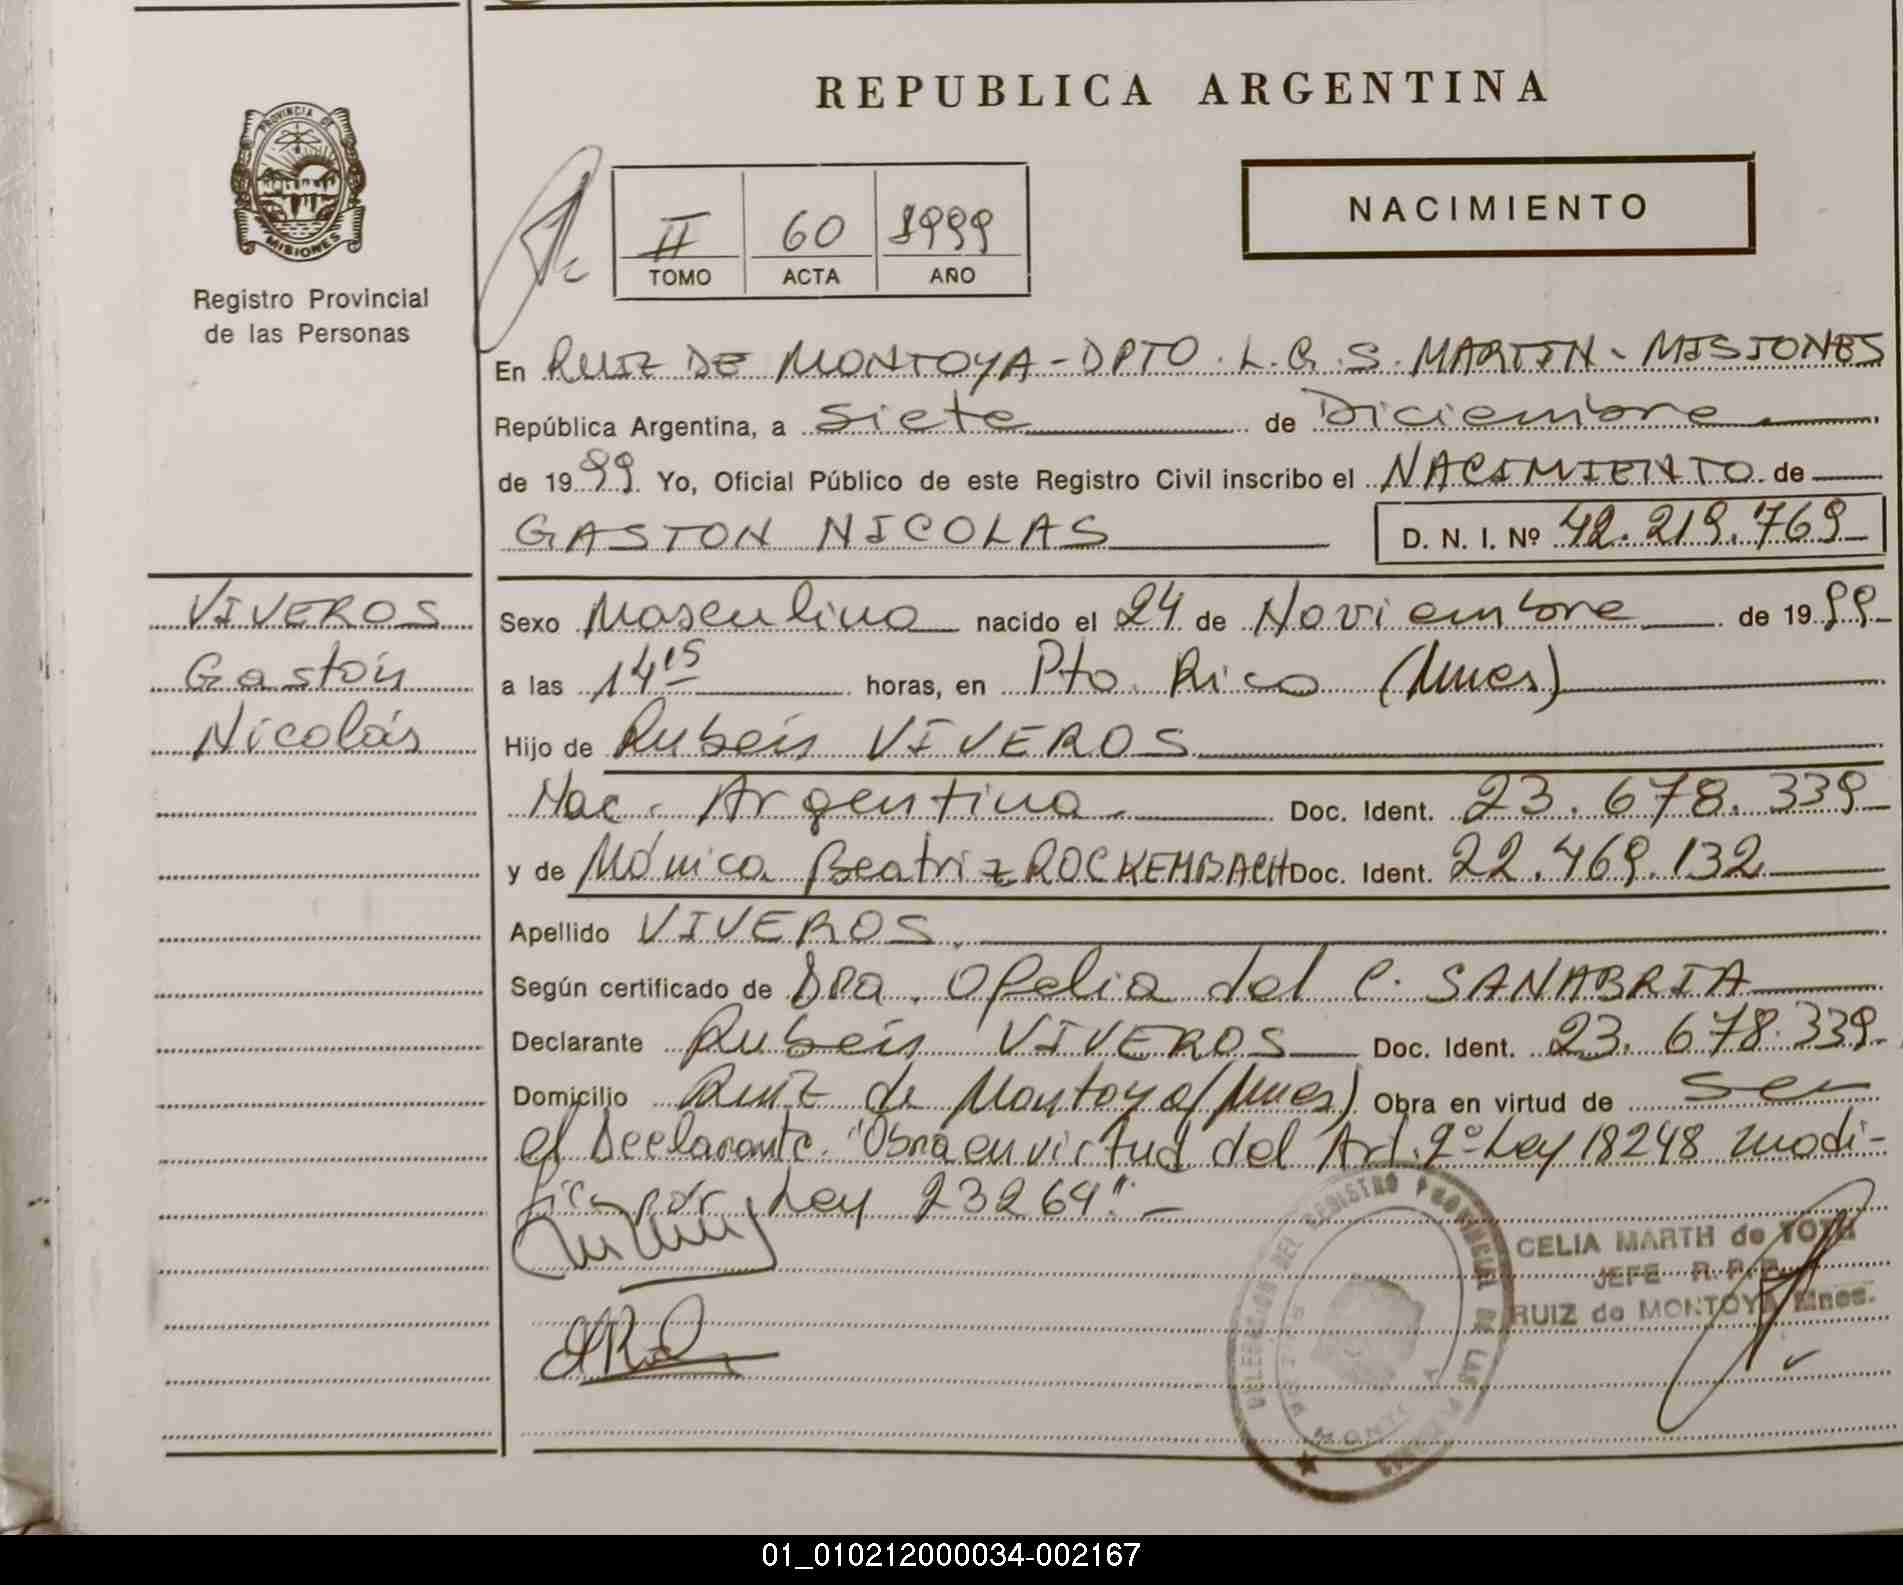 REPUBLICA ARGENTINA
PROVINCIA DE
MISIONES
Registro Provincial
de las Personas
II 60 1999
TOMO ACTA AÑO
NACIMIENTO
En RUIZ DE MONTOYA - DPTO. L.G.S. MARTIN - MISIONES
República Argentina, a Siete de Diciembre
de 1999 Yo, Oficial Público de este Registro Civil inscribo el NACIMIENTO de
GASTON NICOLAS D. N. I. Nº 42.219.769
VIVEROS
Gastón
Nicolás
Sexo Masculino nacido el 24 de Noviembre de 1999
a las 14 15 horas, en Pto. Rico (Mnes)
Hijo de Rubén VIVEROS
Nac. Argentina. Doc. Ident. 23.678.339
y de Mónica Beatriz ROCKEMBACH Doc. Ident. 22.469.132
Apellido VIVEROS.
Según certificado de Dra. Ofelia del C. SANABRIA
Declarante Rubén VIVEROS Doc. Ident. 23.678.339
Domicilio Ruiz de Montoya (Mnes) Obra en virtud de ser
el Declarante. "Obra en virtud del Art. 2º Ley 18248 modi-
fic. por Ley 23264". -
DEL REGISTRO PROVINCIAL DE LAS
CELIA MARTH de TOTH
JEFE R. P. P.
RUIZ de MONTOYA Mnes.
01_010212000034-002167